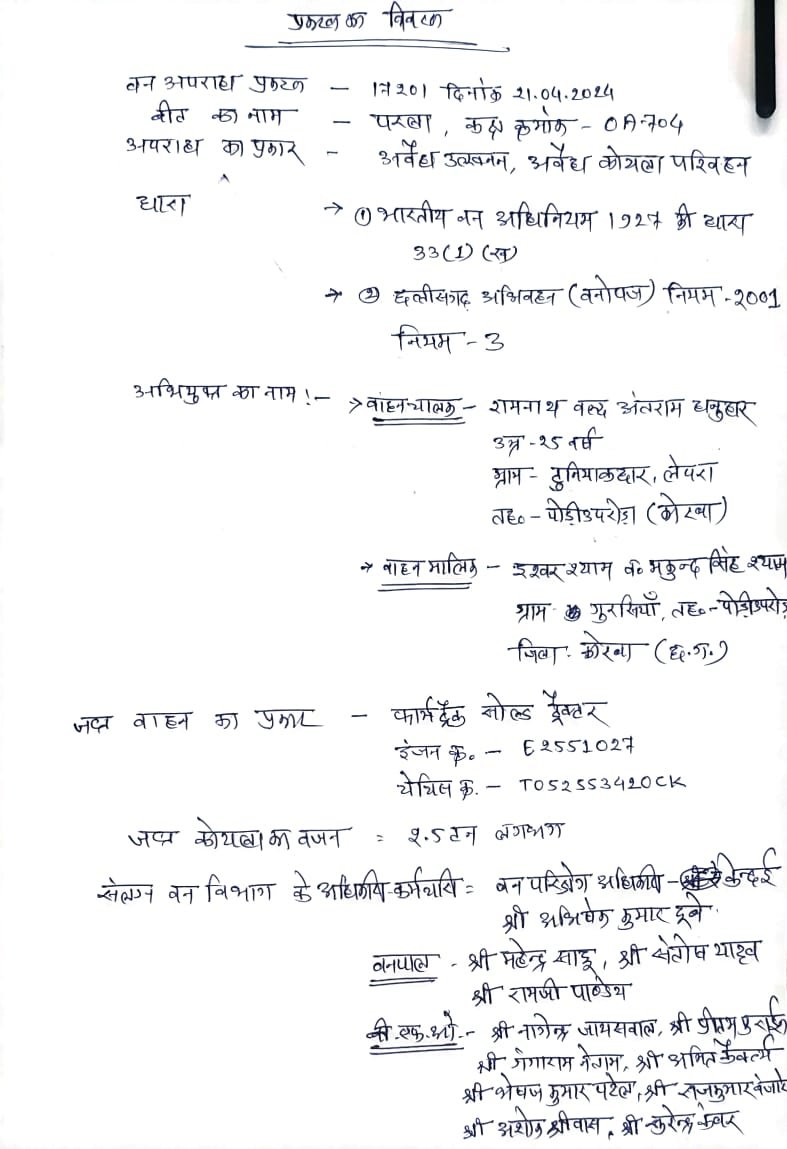 प्रकरण का विवरण
वन अपराध प्रकरण - 17201 दिनांक 21.04.2024
बीट का नाम - परला, कक्ष क्रमांक - OA-704
अपराध का प्रकार - अवैध उत्खनन, अवैध कोयला परिवहन
धारा → ① भारतीय वन अधिनियम 1927 की धारा
33(1) (ख)
→ ② छत्तीसगढ़ अभिवहन (वनोपज) नियम-2001
नियम - 3
अभियुक्त का नाम :- → वाहन चालक - रामनाथ वल्द अंतराम धनुहार
उम्र - 25 वर्ष
ग्राम - दुनियाकछार, लेपरा
तह० - पोड़ीउपरोड़ा (कोरबा)
→ वाहन मालिक - इश्वर श्याम व० मकुन्द सिंह श्याम
ग्राम गुरसियाँ, तह० - पोड़ीउपरोड़
जिला. कोरबा (छ.ग.)
जप्त वाहन का प्रकार - फार्मट्रैक सोल्ड ट्रैक्टर
इंजन क्र. - E2551027
चेचिस क्र. - T052553420CK
जप्त कोयला का वजन = 2.5 टन लगभग
संलग्न वन विभाग के अधिकारी-कर्मचारी = वन परिक्षेत्र अधिकारी - केन्दई
श्री अभिषेक कुमार दूबे.
वनपाल - श्री महेन्द्र साहू, श्री संतोष यादव
श्री रामजी पाण्डेय
बी.एफ.ओ. - श्री नागेन्द्र जायसवाल, श्री प्रीतम पुराईन
श्री गंगाराम नेताम, श्री अमित कैवर्त्य
श्री भेषज कुमार पटेल, श्री राजकुमार बंजारे
श्री अशोक श्रीवास, श्री सुरेन्द्र कंवर